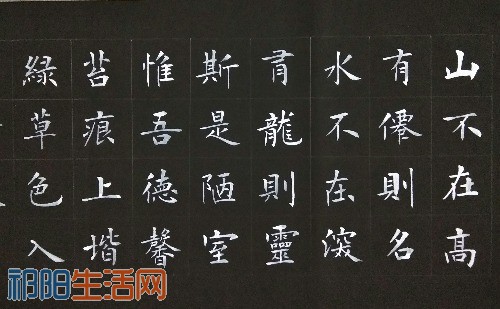 山不在高
有僊則名
水不在深
有龍則靈
斯是陋室
惟吾德馨
苔痕上堦
綠草色入
祁阳生活网